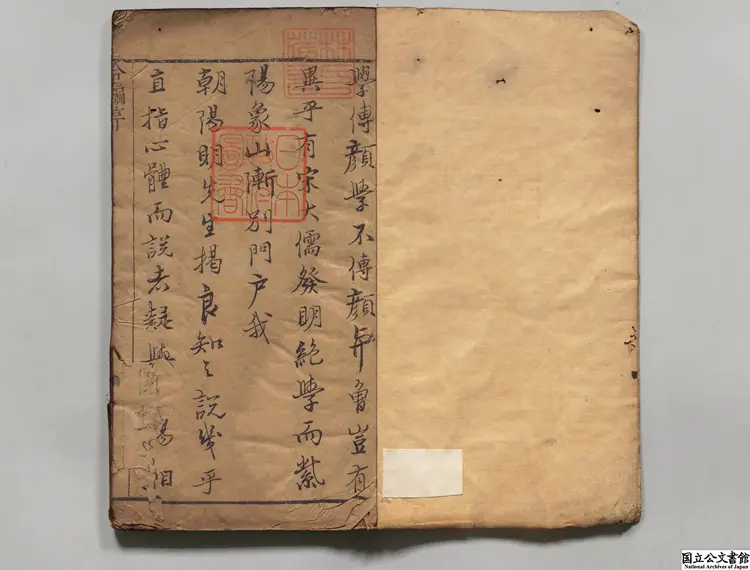 林氏藏書
日本政府圖書
學傳顔學不傳顔曾豈有
異乎有宋大儒發明絶學而紫
陽象山漸別門户我
朝陽明先生揭良知〻說幾乎
直指心體而說者疑與陽相
合編序
国立公文書館
National Archives of Japan